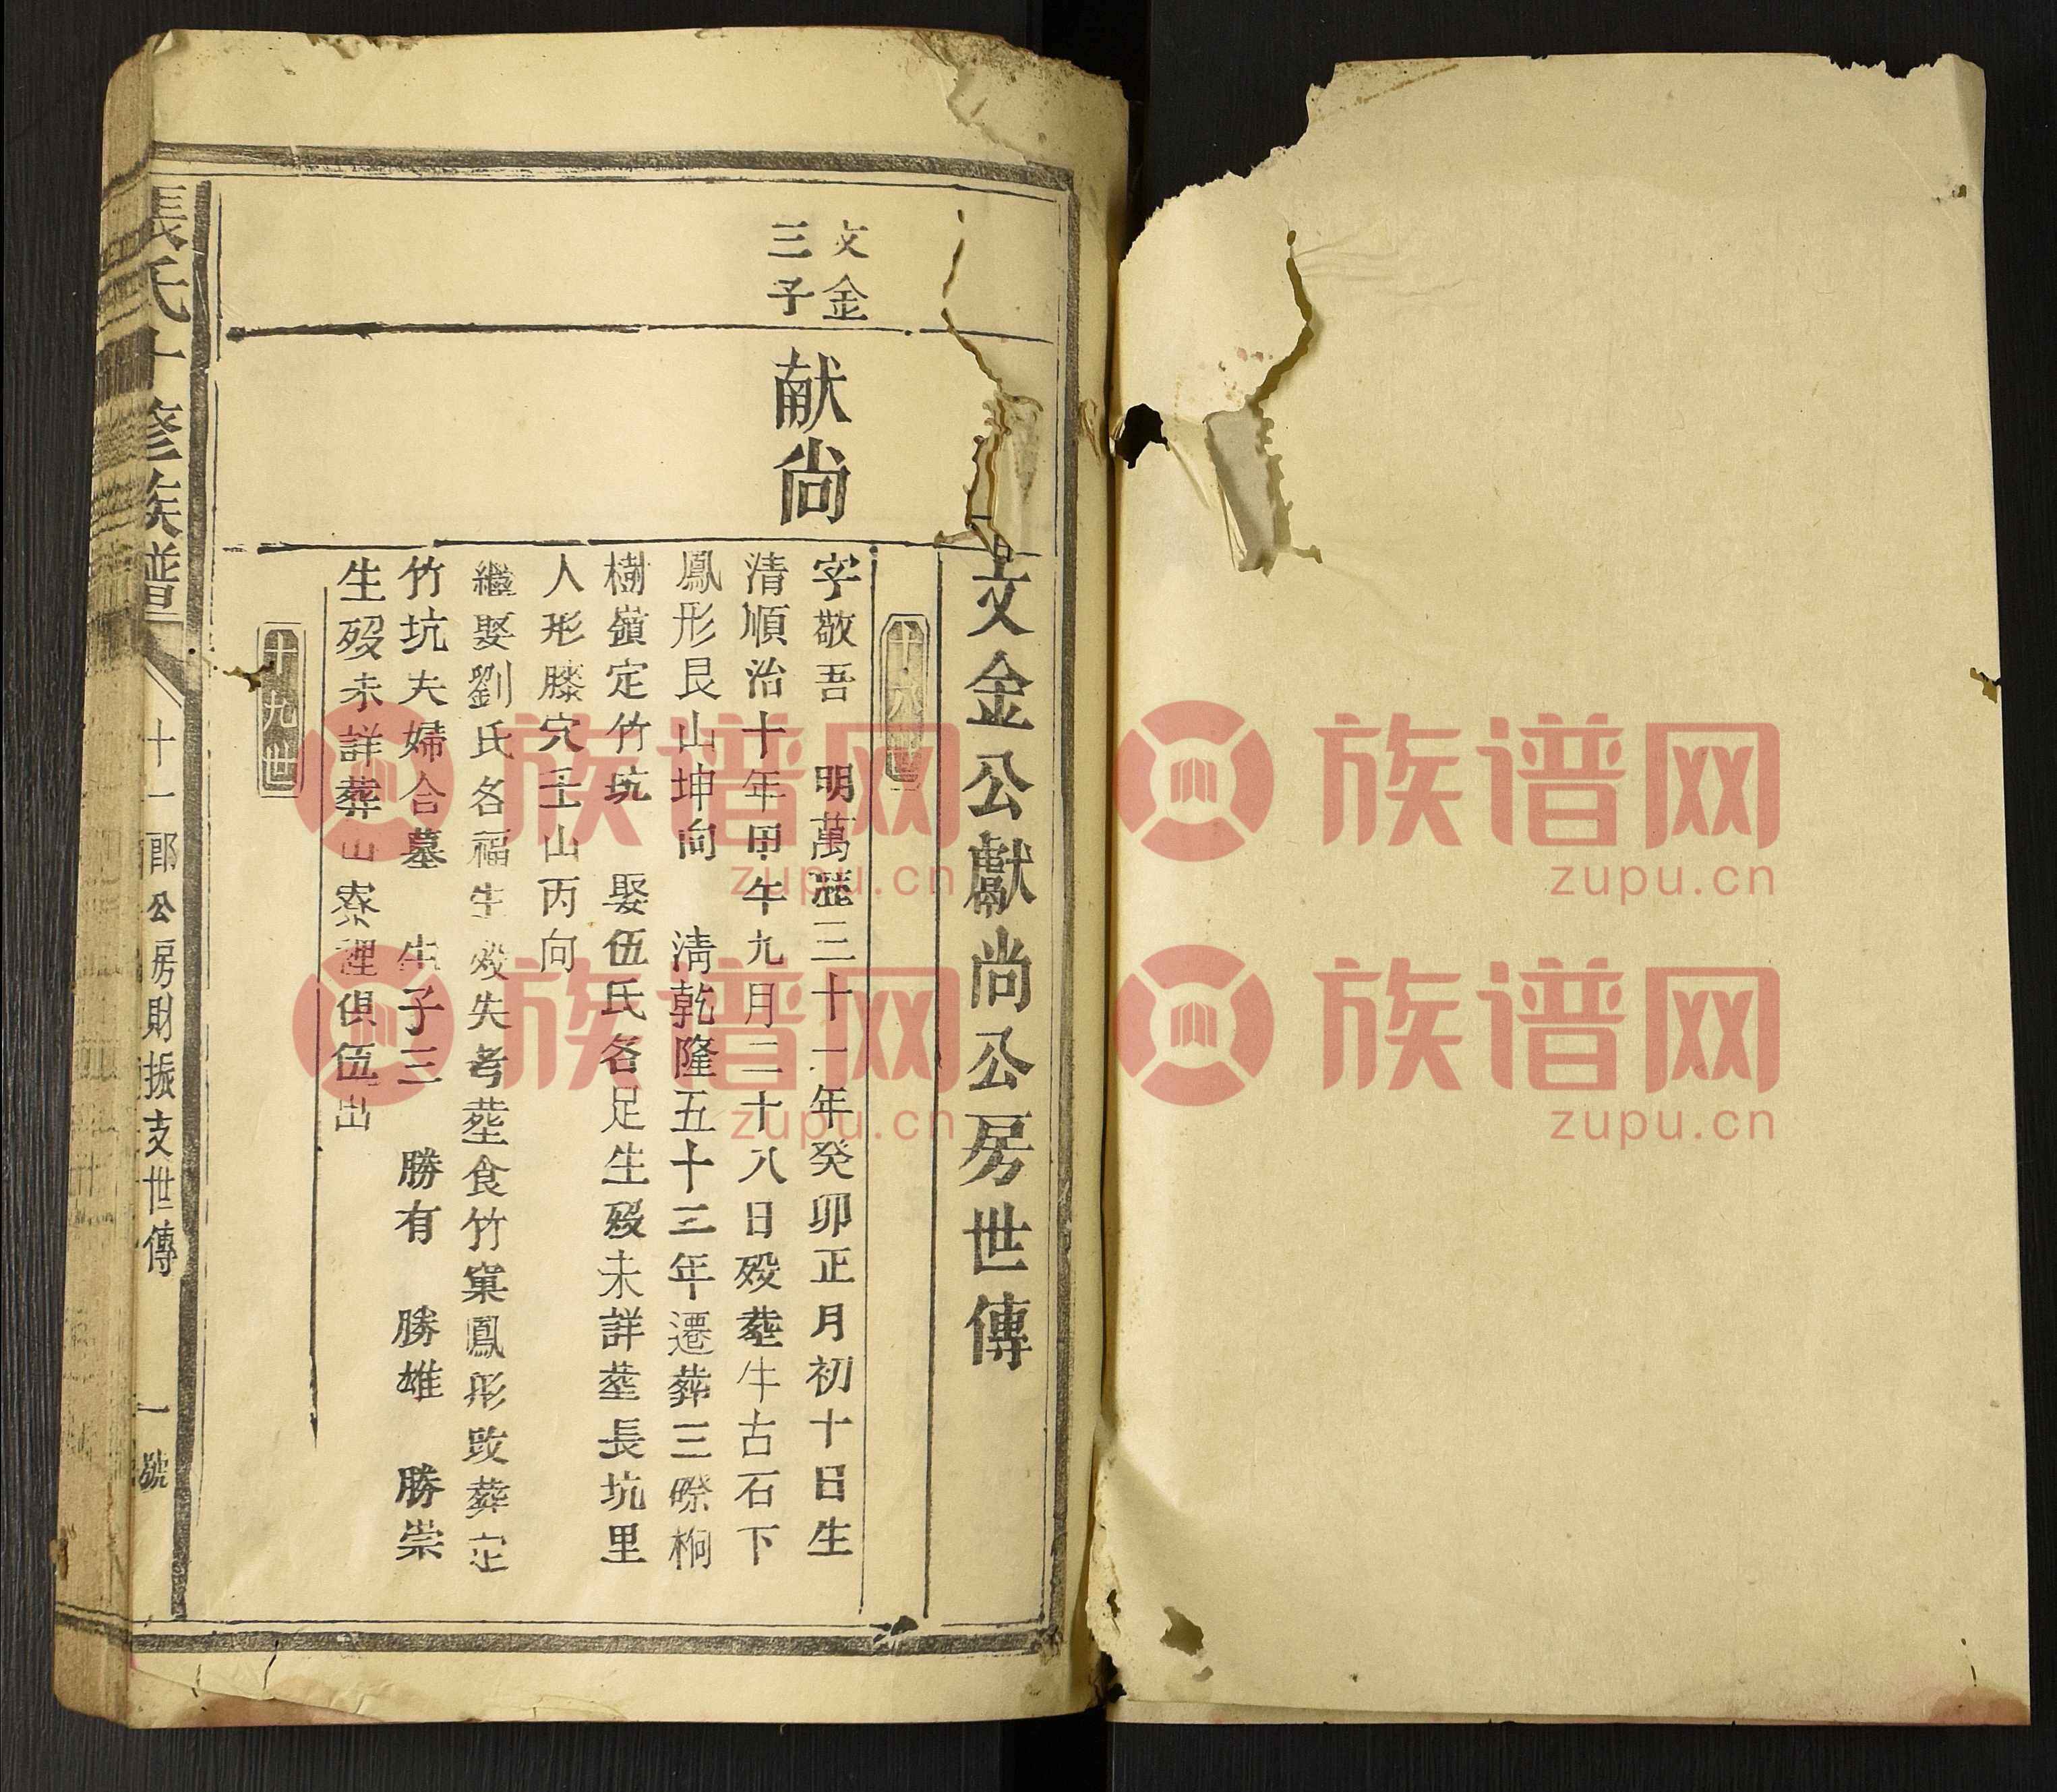 文金公獻尚公房世傳
十八世
文金
三子
献尚
字敬吾　明萬歷三十一年癸卯正月初十日生
清順治十年甲午九月二十八日殁塟牛古石下
鳳形艮山坤向　清乾隆五十三年遷葬三磜桐
樹嶺定竹坑　娶伍氏名足生殁未詳塟長坑里
人形膝穴壬山丙向
繼娶劉氏名福生殁失考塟食竹窠鳳形改葬定
竹坑夫婦合墓　生子三　勝有　勝雄　勝崇
生殁未詳葬山寮裡俱伍出
十九世
張氏十修族譜
十一郎公房財振支世傳
一號
族谱网
zupu.cn
族谱网
zupu.cn
族谱网
zupu.cn
族谱网
zupu.cn